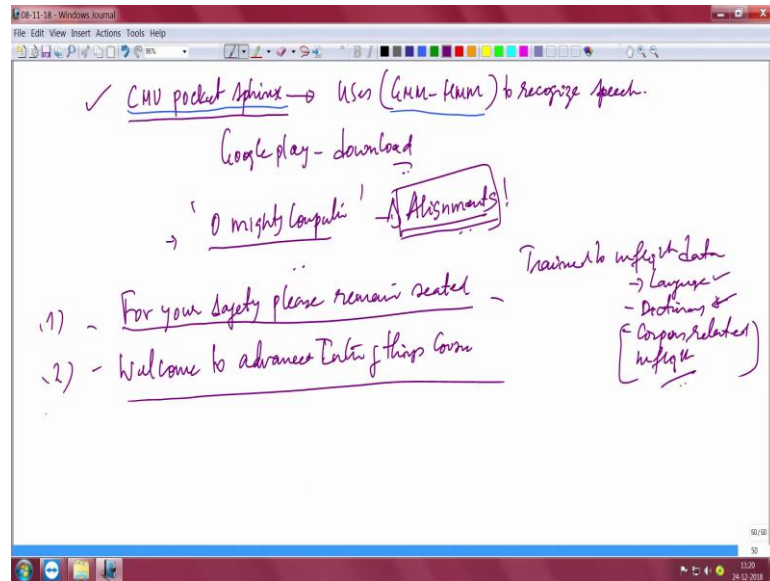 08-11-18 - Windows Journal
File Edit View Insert Actions Tools Help
96%
✓ CMU pocket sphinx → Uses (GMM-HMM) to recognize speech.
Google play - download
→ 'O mighty Computer' → Alignments!
Trained to inflight data
→ Language ✓
- Dictionary
- Corpus related
inflight
1) - For your safety please remain seated -
2) - Welcome to advance things
50/50
50
11:20
24-12-2018